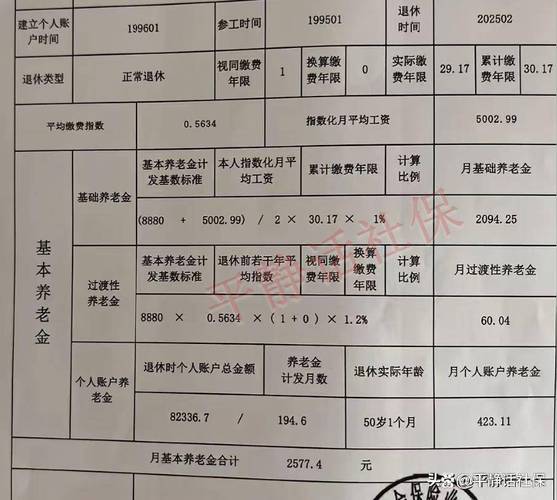 建立个人账户时间 199601 参工时间 199501 退休时间 202502
退休类型 正常退休 视同缴费年限 1 换算缴费年限 0 实际缴费年限 29.17 累计缴费年限 30.17
平均缴费指数 0.5634 指数化月平均工资 5002.99
基本养老金
基础养老金
基本养老金计发基数标准 本人指数化月平均工资 累计缴费年限 计算比例 月基础养老金
(8880 + 5002.99) / 2 × 30.17 × 1% 2094.25
过渡性养老金
基本养老金计发基数标准 退休前若干年平均指数 视同缴费年限 换算缴费年限 计算比例 月过渡性养老金
8880 × 0.5634 × (1+0) × 1.2% 60.04
个人账户养老金
退休时个人账户总金额 养老金计发月数 退休实际年龄 月个人账户养老金
82336.7 / 194.6 50岁1个月 423.11
月基本养老金合计 2577.4 元
平静话社保
头条 @平静话社保